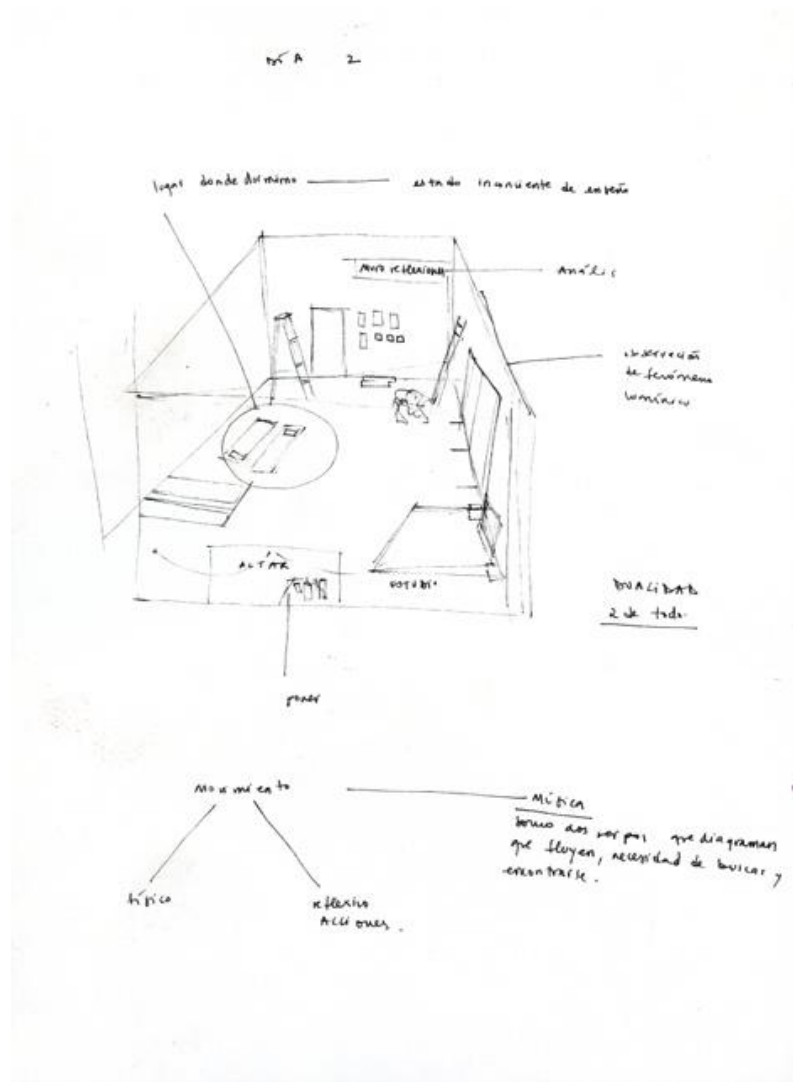 DÍA 2
lugar donde dormimo estado inconciente de ensueño
muro reflexiones
Análisis
observación
de fenómeno
lumínico
ALTAR
ESTUDIO
DUALIDAD
2 de todo
poner
Movimiento
Mítica
somos dos que diagraman
que fluyen, necesidad de buscar y
encontrarse.
reflexivo
ACCiones.